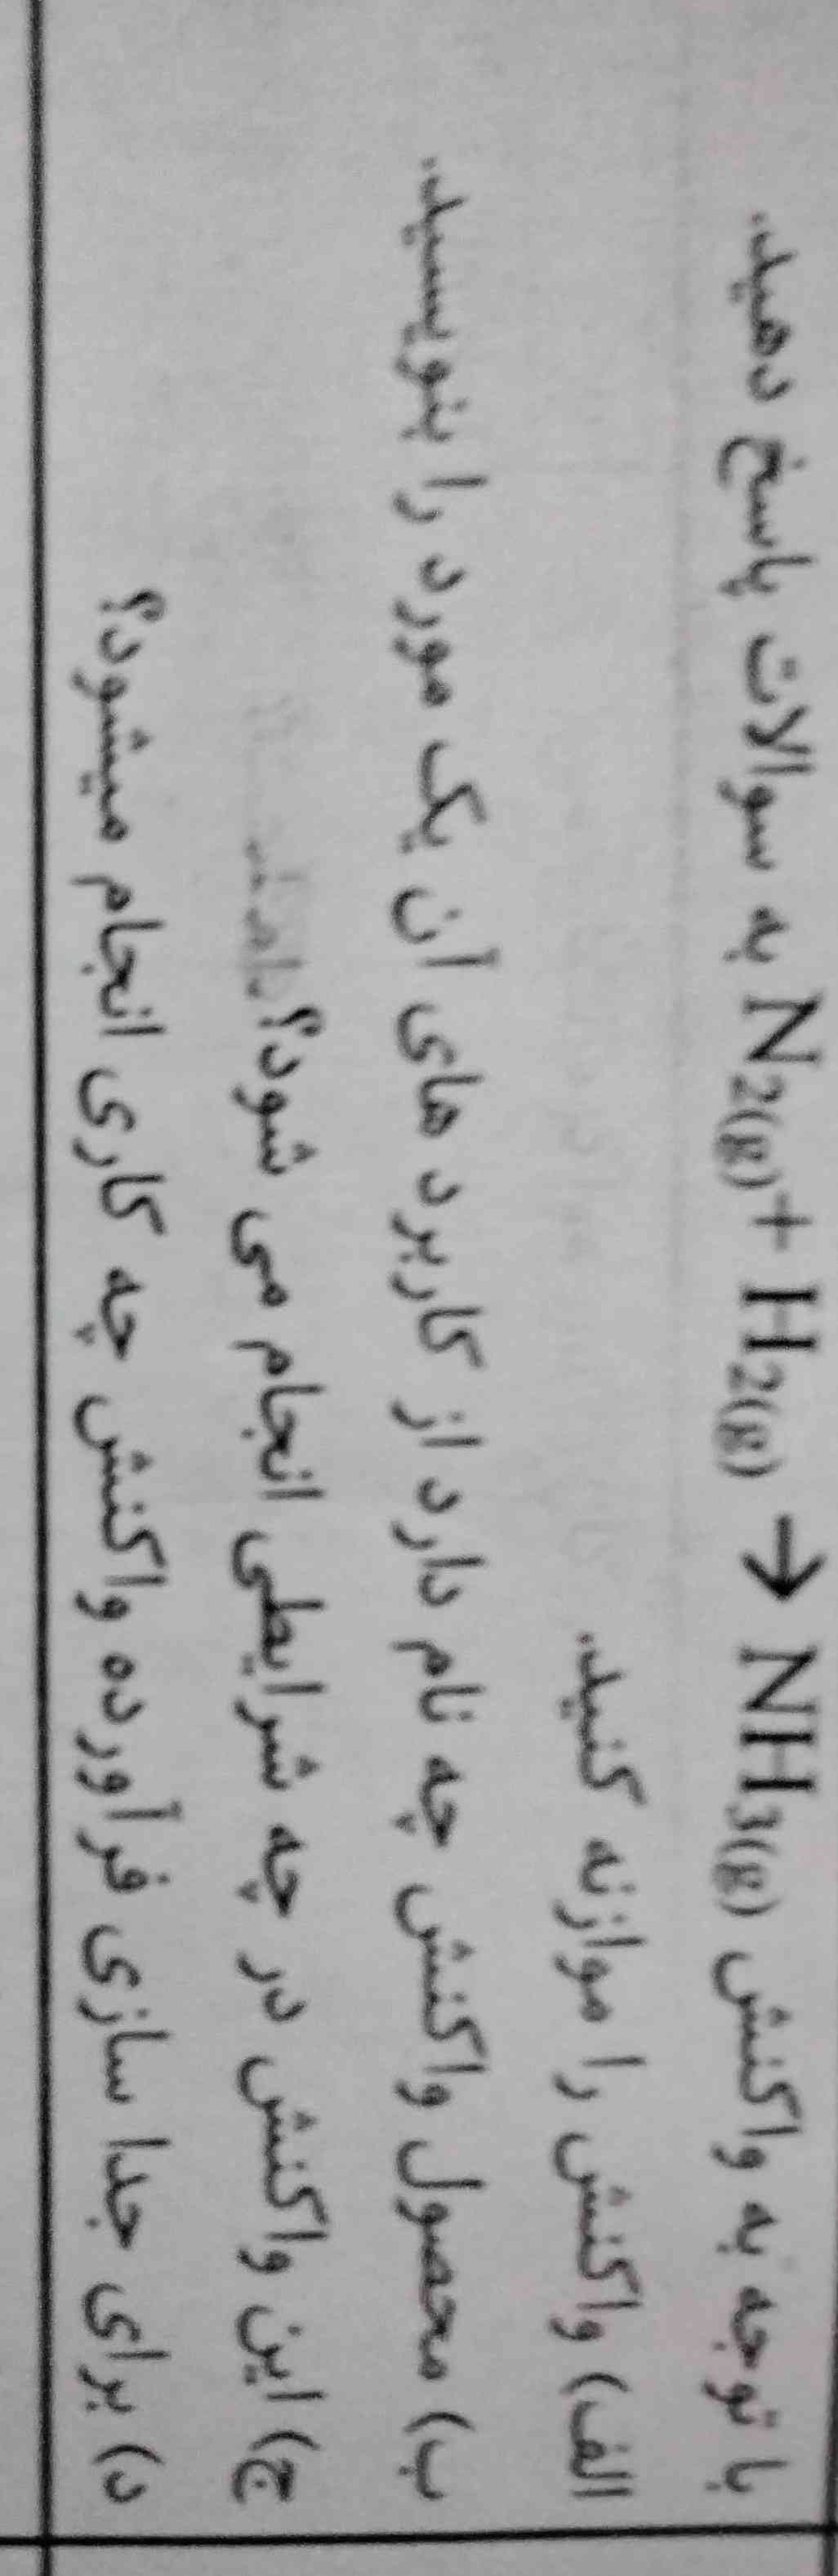 با توجه به واکنش N2(g)+ H2(g) → NH3(g) به سوالات پاسخ دهید.
الف) واکنش را موازنه کنید.
ب) محصول واکنش چه نام دارد از کاربرد های آن یک مورد را بنویسید.
ج) این واکنش در چه شرایطی انجام می شود؟
د) برای جدا سازی فرآورده واکنش چه کاری انجام میشود؟